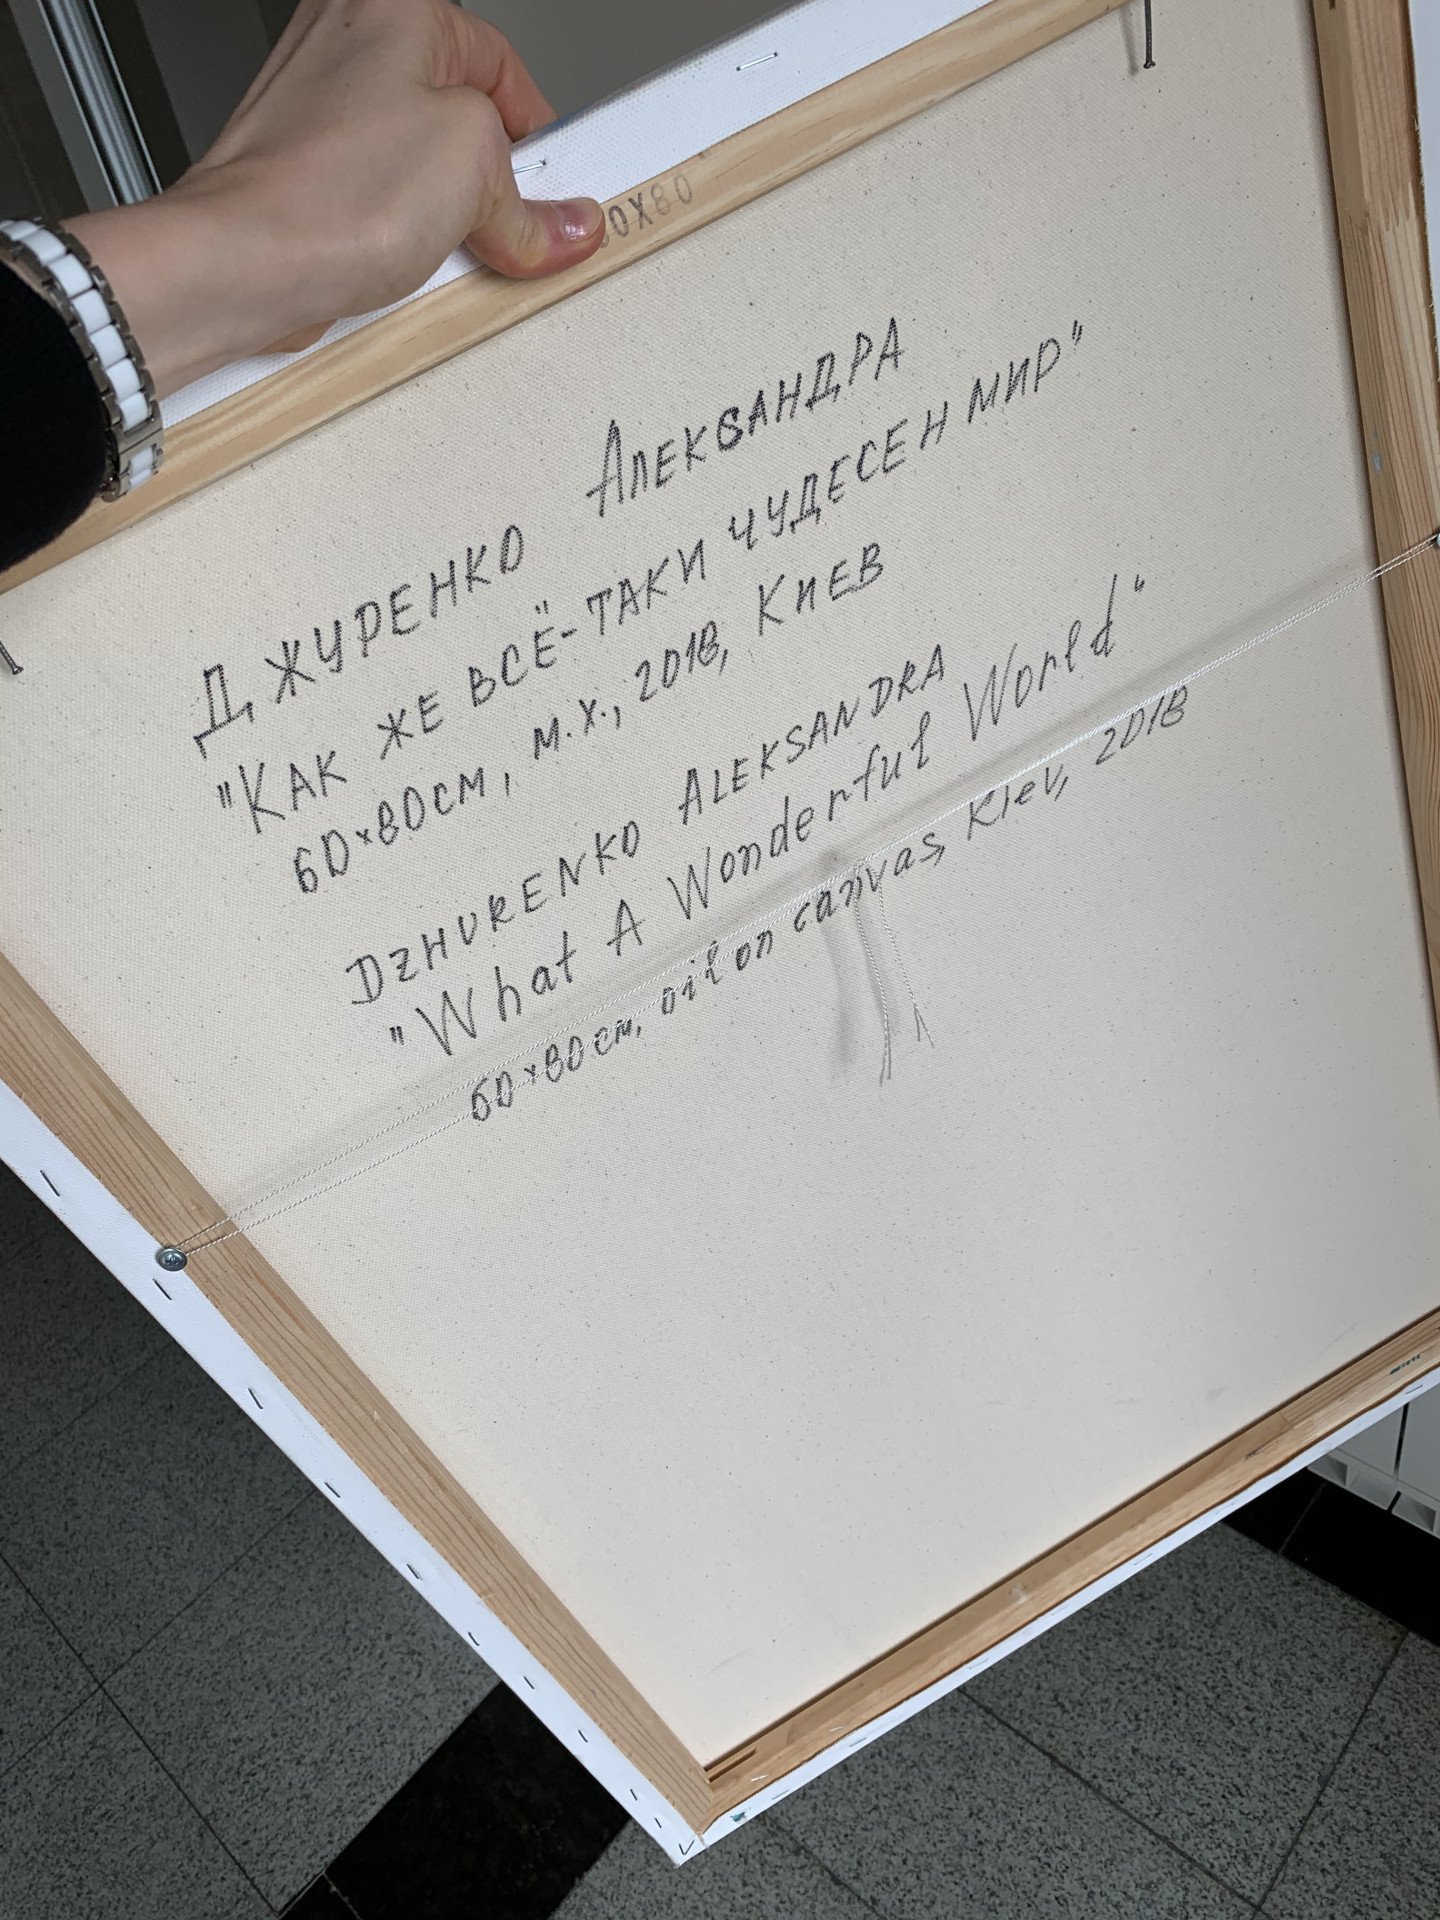 0X80
ДЖУРЕНКО АЛЕКСАНДРА
"КАК ЖЕ ВСЁ-ТАКИ ЧУДЕСЕН МИР"
60×80СМ, М.Х., 2018, КИЕВ
DZHURENKO ALEKSANDRA
"What A Wonderful World"
60×80cm, oil on canvas, Kiev, 2018